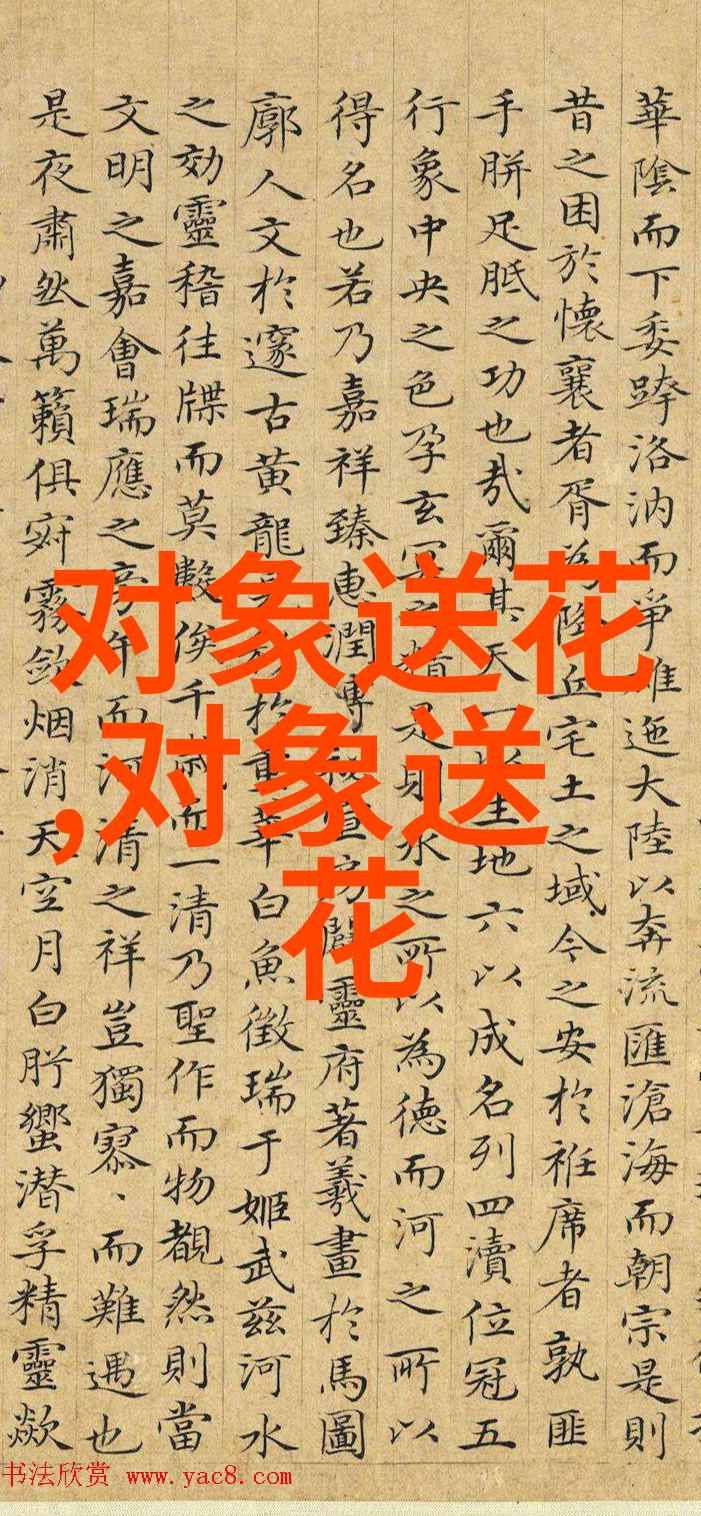 華陰而下委跨洛汭而爭雄迤大陸以奔流匯滄海而朝宗是則
昔之困於懷襄者胥為降丘宅土之域今之安於袵席者孰匪
手胼足胝之功也哉爾其天一以生地六以成名列四瀆位冠五
行象中央之色孕玄冥之精是則水之所以為德而河之所以
得名也若乃嘉祥臻惠潤溥秘宣房闢靈府著羲畫於馬圖
廓人文於邃古黃龍於重華白魚徵瑞于姬武茲河水
之効靈稽往牒而莫斁俟千歲而一清乃聖作而物覩然則當
文明之嘉會瑞應之旁午而河清之祥豈獨寥、而難遇也
是夜肅然萬籟俱寂霧斂烟消天空月白肸蠁潛孚精靈歘
对象送花
,对象送
花
书法欣赏 www.yac8.com